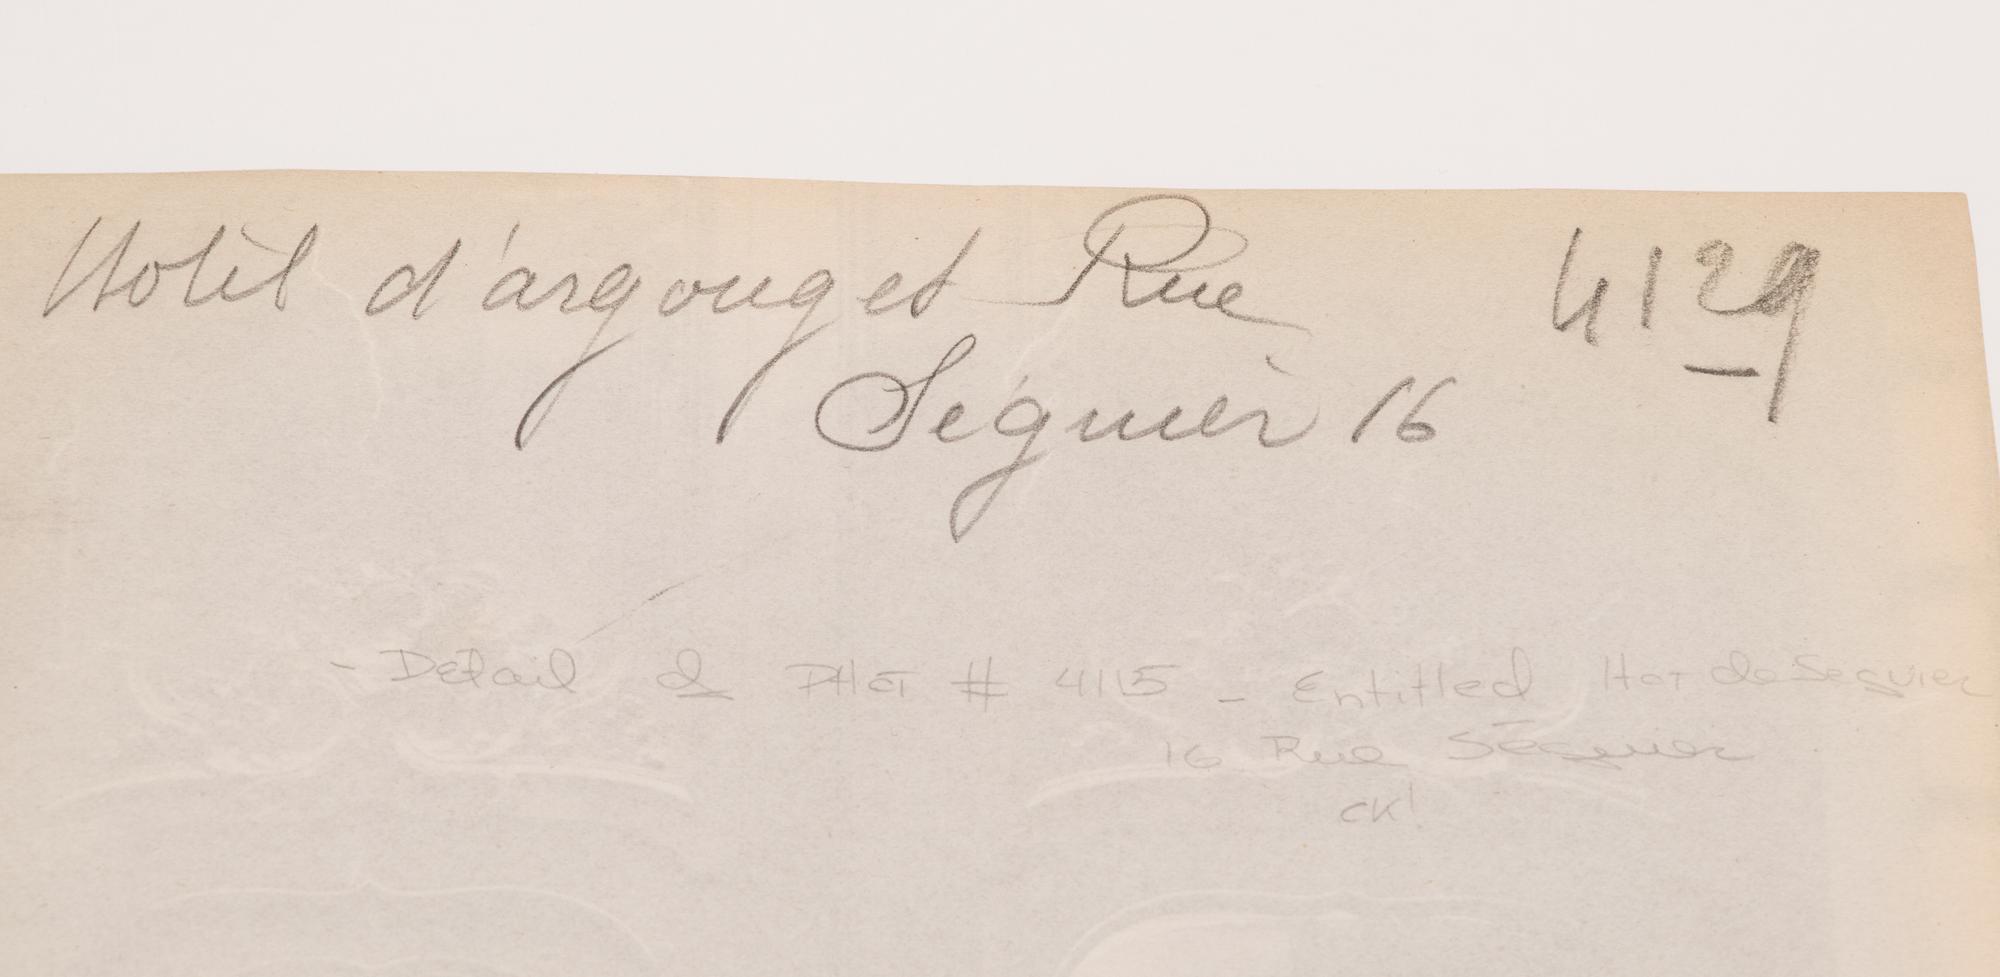 Hotèl d'argouget Rue 4129
Séguièr 16
- Detail of PHOT # 4115 - Entitled Hot de Seguier
16 Rue Séguier
CK!